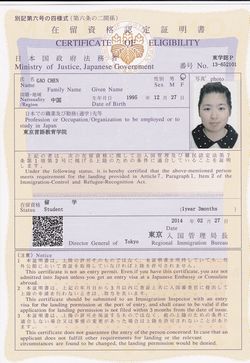 別記第六号の四様式(第六条の二関係)
在留資格認定証明書
CERTIFICATE OF ELIGIBILITY
日本国政府法務省
Ministry of Justice, Japanese Government
東学語P
No.
写真 photo
氏名
Name
GAO CHEN
Family Name
Given Name
性別 男 女
Sex M F
国籍・地域
Nationality
Region
中国
生年月日
Date of Birth
1995 年 12 月 27 日
日本での職業及び勤務(通学)先等
Profession or Occupation/Organization to be employed or to
study in Japan
東京言語教育学院
Under the following status, it is hereby certified that the above-mentioned person
meets requirement for the landing provided in Article 7, Paragraph 1, Item 2 of the
Immigration-Control and Refugee-Recognition Act.
在留資格
Status
留学
Student
(1year 3months)
2014 年 02 月 27 日
東京 入国管理局長
Director General of Tokyo Regional Immigration Bureau
[注意] Notice
This certificate is not an entry permit. Even if you have this certificate, you are not
admitted into Japan unless you get an entry visa at a Japanese Embassy or Consulate
abroad.
This certificate should be submitted to an Immigration Inspector with an entry
visa for the landing permission at the port of entry, and shall cease to be valid if the
application for landing permission is not filed within 3 months from the date of issue.
This certificate does not guarantee the entry of the person concerned. In case that an
applicant does not fulfill other requirements for landing or the relevant
circumstances are found to be changed, the landing permission would be denied.